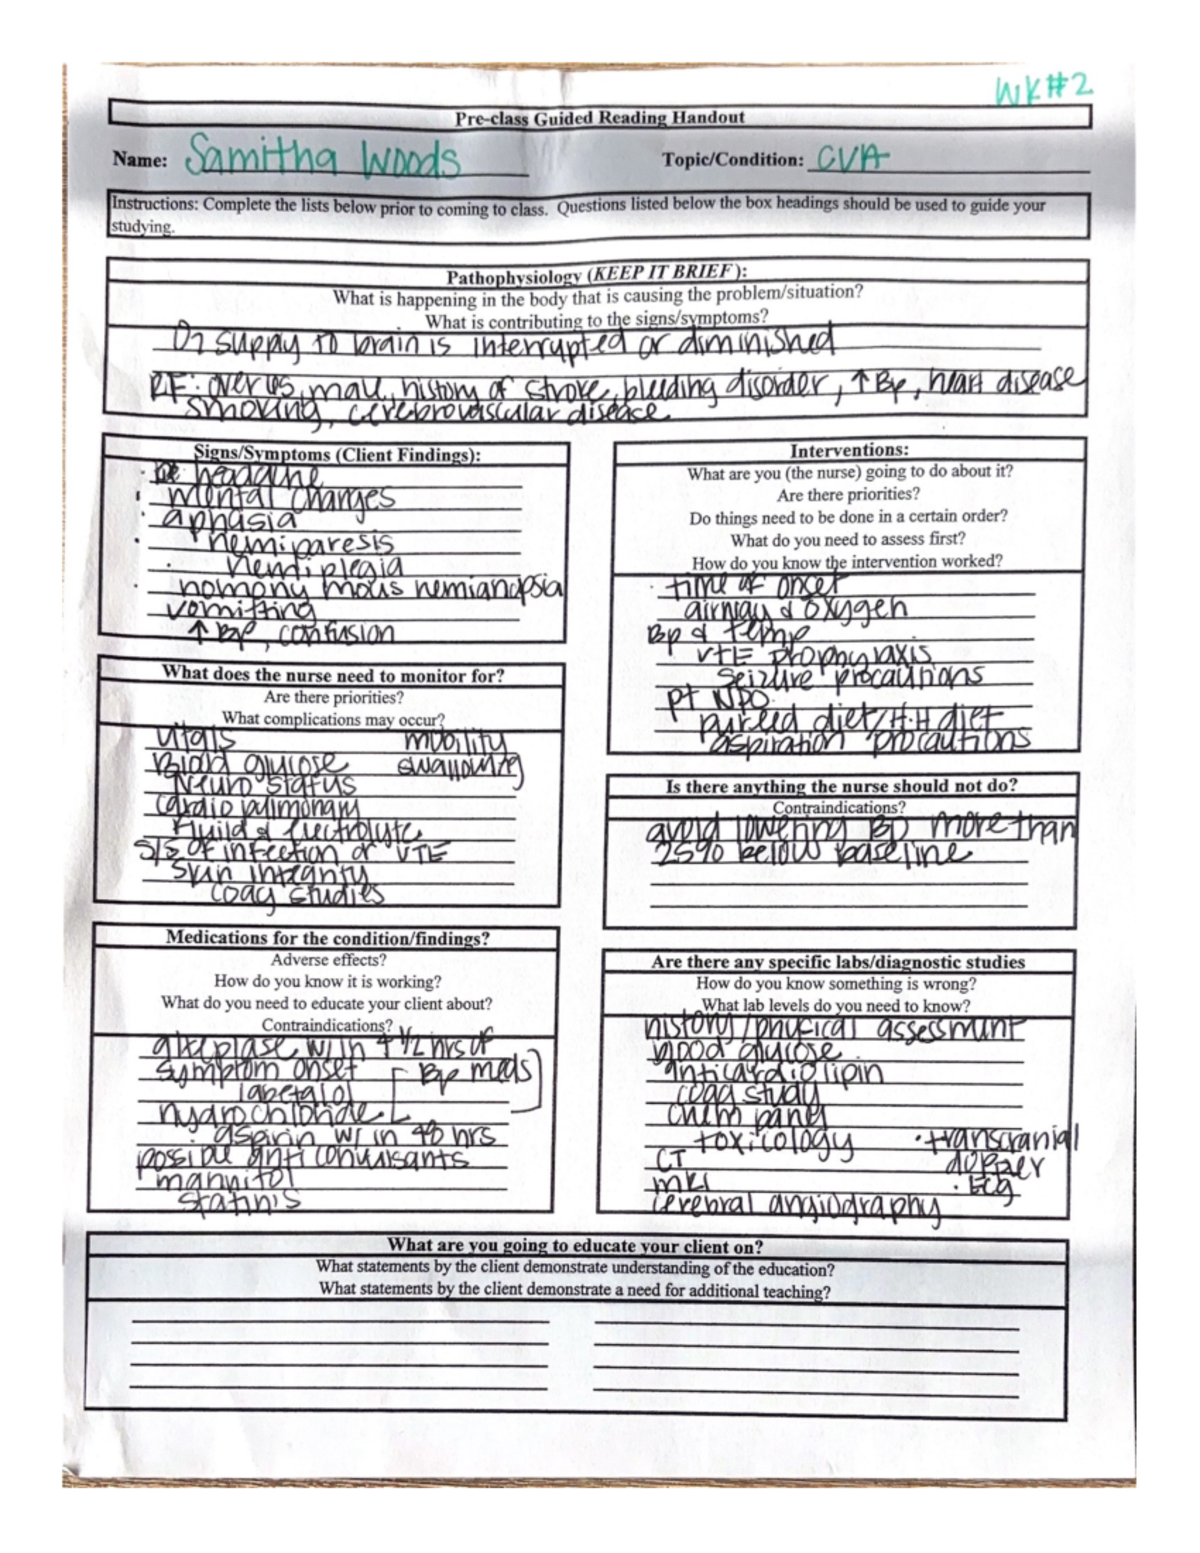 WK#2
Pre-class Guided Reading Handout
Name: Samitha Woods Topic/Condition: CVA
Instructions: Complete the lists below prior to coming to class. Questions listed below the box headings should be used to guide your
studying.
Pathophysiology (KEEP IT BRIEF):
What is happening in the body that is causing the problem/situation?
What is contributing to the signs/symptoms?
O2 supply to brain is interrupted or diminished
RF: over 65, male, history of stroke, bleeding disorder, ↑ Bp, heart disease
smoking, cerebrovascular disease
Signs/Symptoms (Client Findings):
· headache
· mental changes
· aphasia
· hemiparesis
· hemiplegia
· homonymous hemianopsia
vomitting
↑ Bp, confusion
Interventions:
What are you (the nurse) going to do about it?
Are there priorities?
Do things need to be done in a certain order?
What do you need to assess first?
How do you know the intervention worked?
· time of onset
airway & oxygen
Bp & temp
VTE prophylaxis
seizure precautions
pt NPO
pureed diet/H·H diet
aspiration precautions
What does the nurse need to monitor for?
Are there priorities?
What complications may occur?
vitals mobility
Blood glucose swallowing
Neuro status
cardiopulmonary
Fluid & electrolyte
S/S of infection or VTE
skin integrity
coag studies
Is there anything the nurse should not do?
Contraindications?
avoid lowering BP more than
25% below baseline
Medications for the condition/findings?
Adverse effects?
How do you know it is working?
What do you need to educate your client about?
Contraindications?
alteplase w/in 4 1/2 hrs of
symptom onset
labetalol
hydrochloride Bp meds
aspirin w/in 48 hrs
possible anticonvulsants
mannitol
statins
Are there any specific labs/diagnostic studies
How do you know something is wrong?
What lab levels do you need to know?
history/physical assessment
blood glucose
anticardiolipin
coag study
chem panel
toxicology · transcranial
CT doppler
MRI · ECG
cerebral angiography
What are you going to educate your client on?
What statements by the client demonstrate understanding of the education?
What statements by the client demonstrate a need for additional teaching?